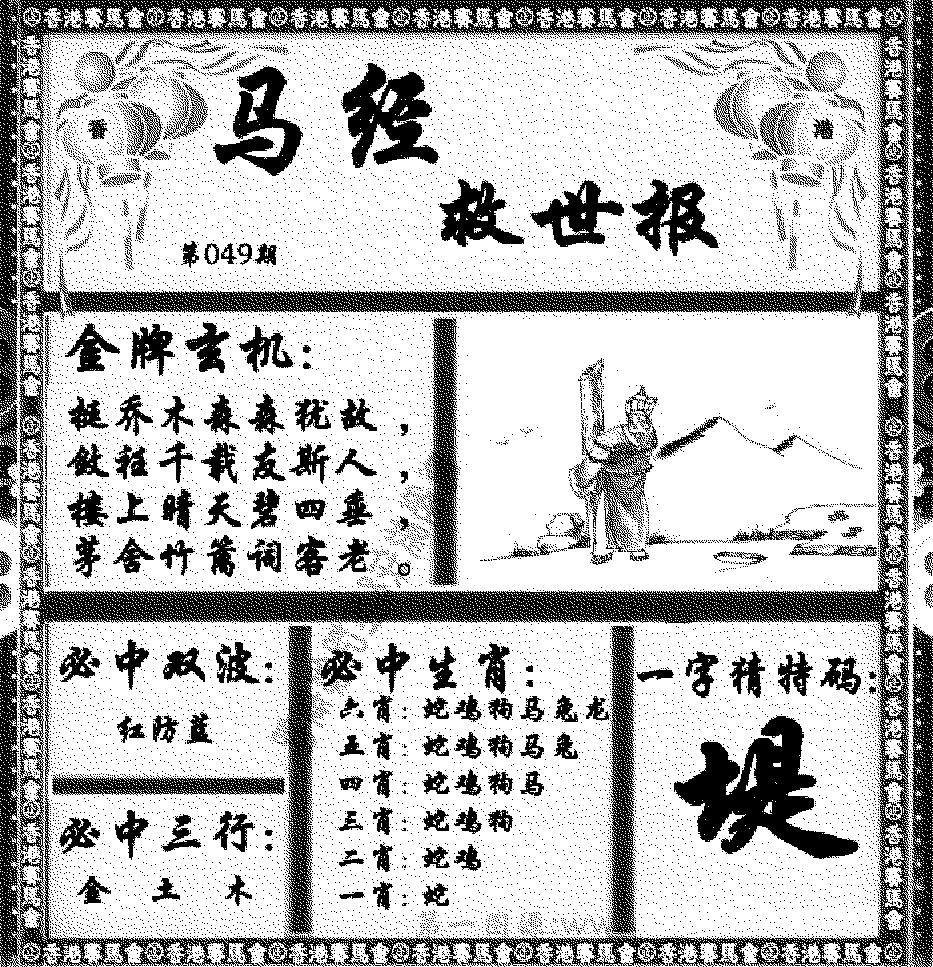 香港賽馬會 香港賽馬會 香港賽馬會 香港賽馬會 香港賽馬會 香港賽馬會 香港賽馬會
香
港
马经
救世报
第049期
金牌玄机:
挺乔木森森犹故,
敛程千载友斯人,
楼上晴天碧四垂,
茅舍竹篱词客老。
必中双波:
红防蓝
必中三行:
金 土 木
必中生肖:
六肖: 蛇鸡狗马兔龙
五肖: 蛇鸡狗马兔
四肖: 蛇鸡狗马
三肖: 蛇鸡狗
二肖: 蛇鸡
一肖: 蛇
一字猜特码:
堤
香港賽馬會 香港賽馬會 香港賽馬會 香港賽馬會 香港賽馬會 香港賽馬會 香港賽馬會